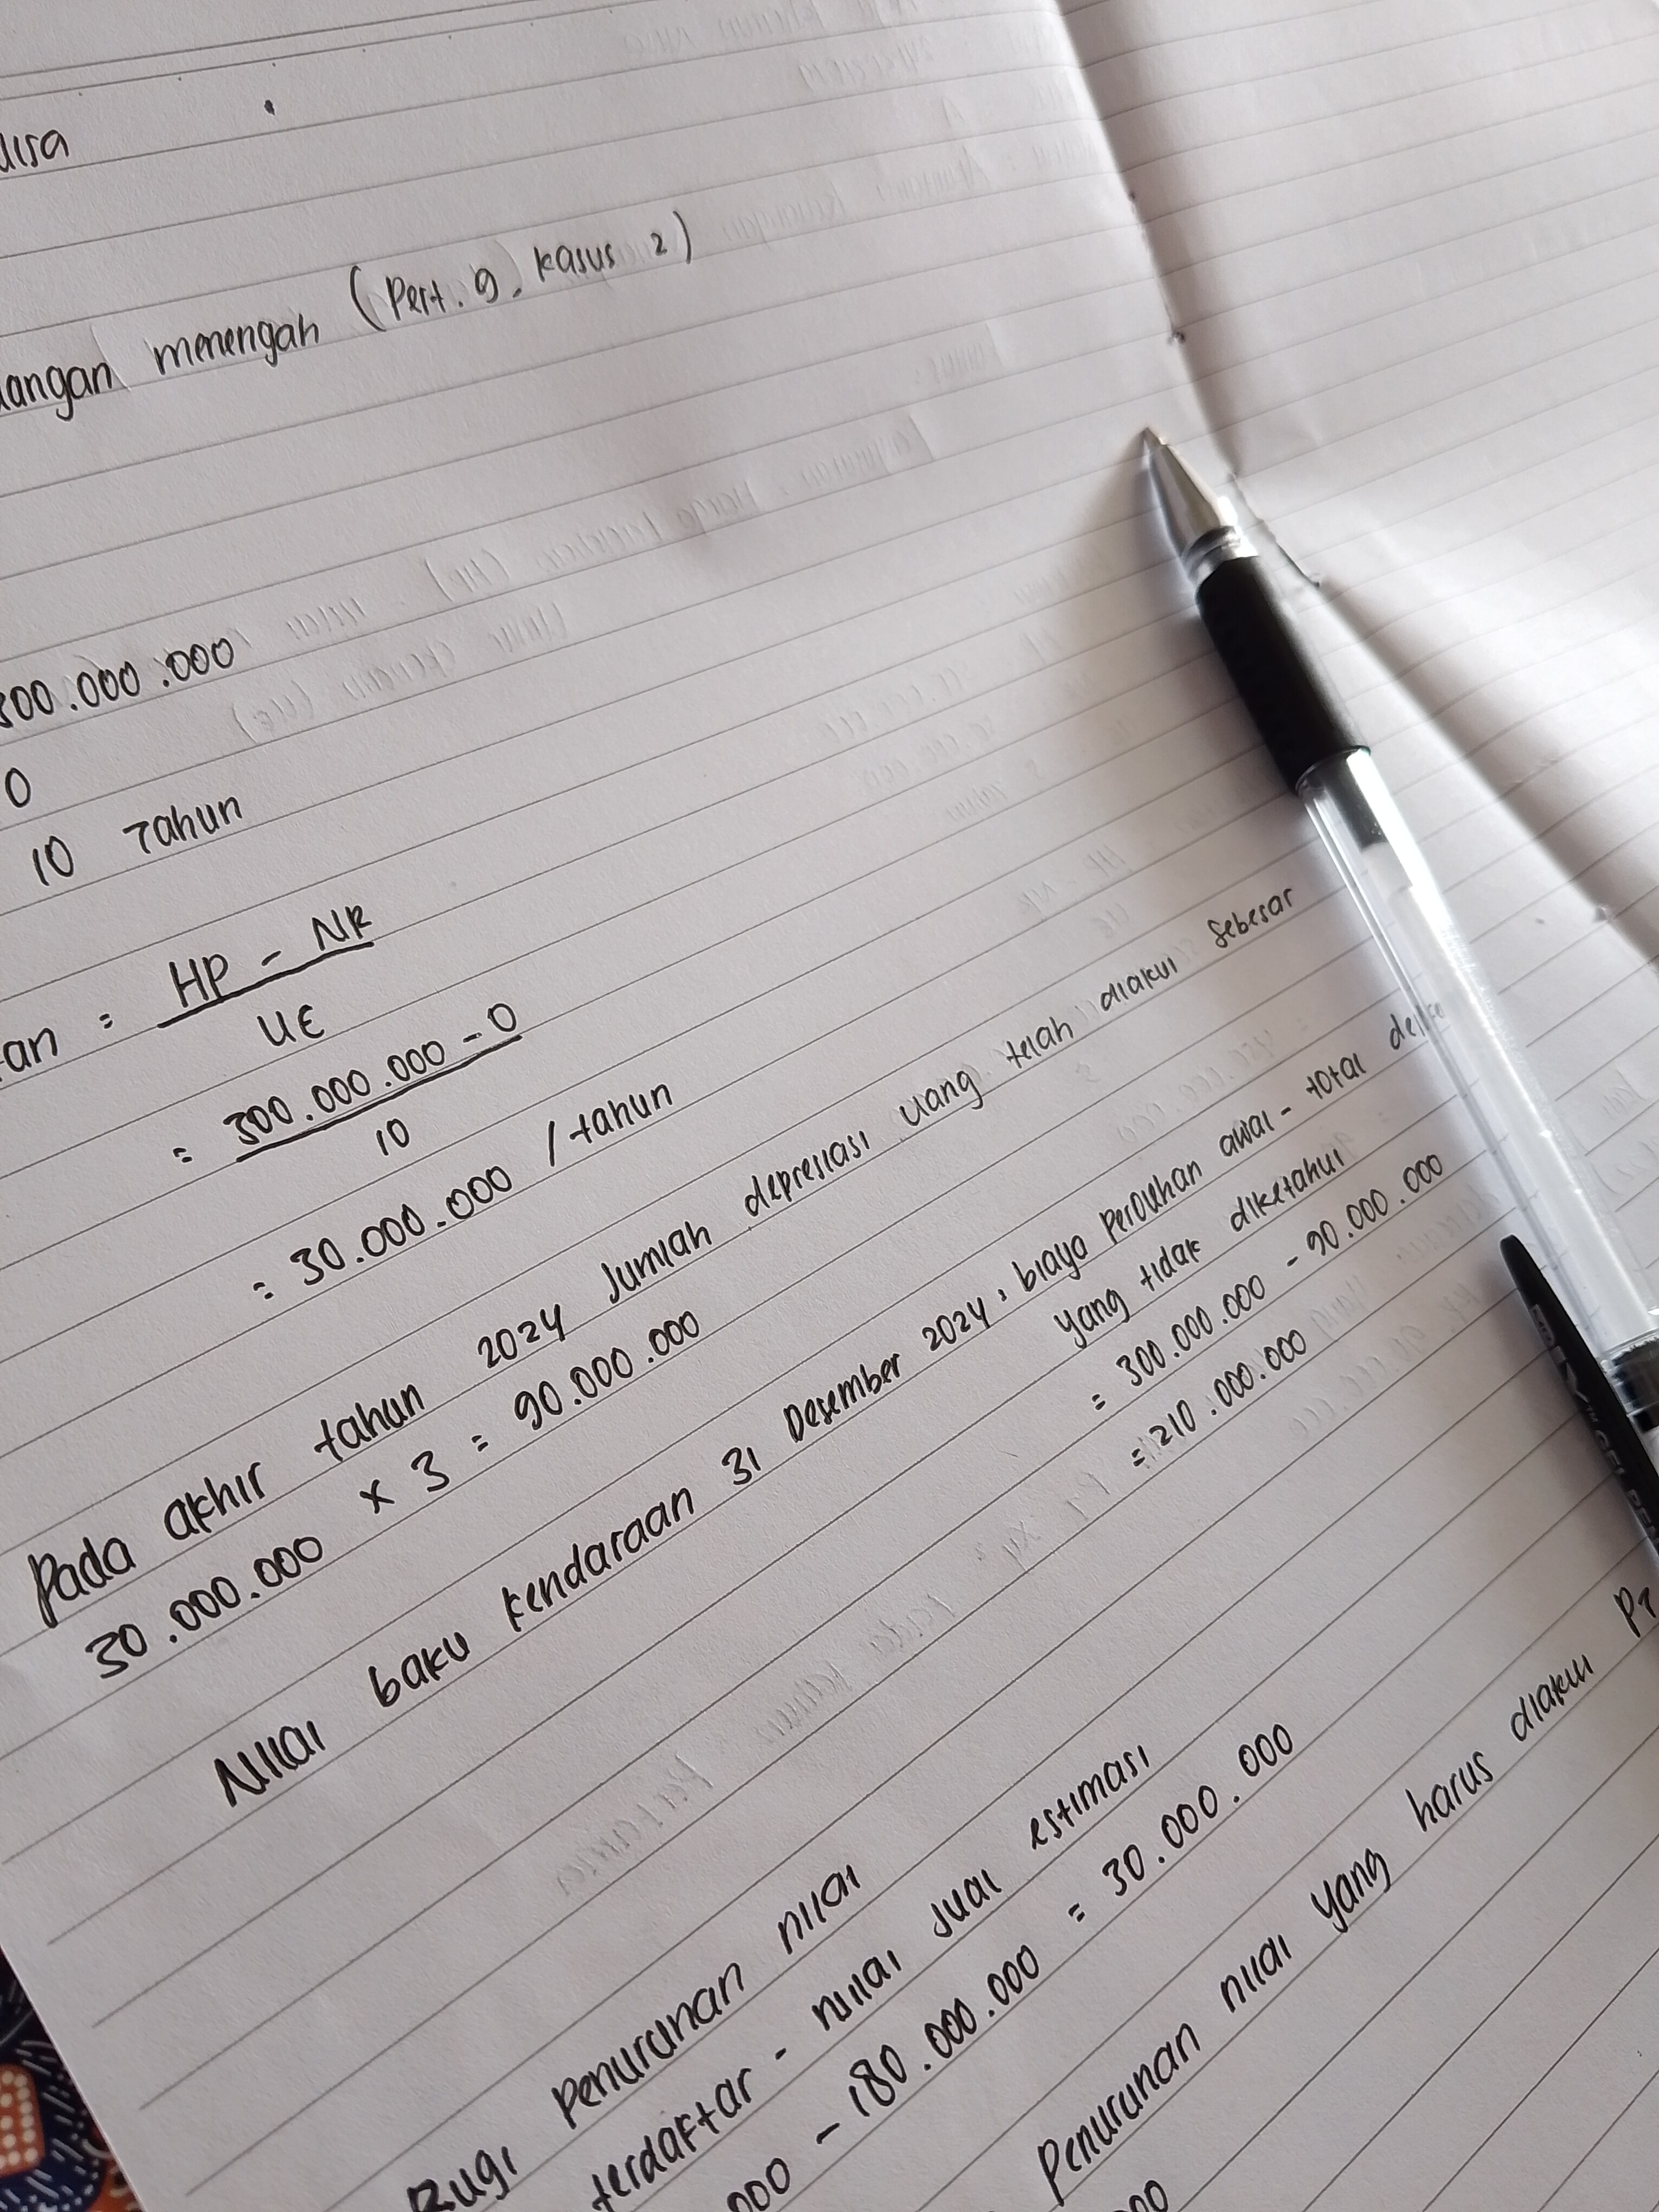 disa
uangan menengah (Pert. 9, kasus 2)
300.000.000
0
10 Tahun
an = HP - NR
UE
= 300.000.000 - 0
10
= 30.000.000 / tahun
Pada akhir tahun 2024 Jumlah depresiasi uang telah diakui sebesar
30.000.000 x 3 = 90.000.000
Nilai baku kendaraan 31 Desember 2024 : biaya perolehan awal - total
yang tidak diketahui
= 300.000.000 - 90.000.000
= 210.000.000
Rugi Penurunan nilai
terdaftar - nilai jual estimasi
000 - 180.000.000 = 30.000.000
Penurunan nilai yang harus diakui PT
000
GEL PEN